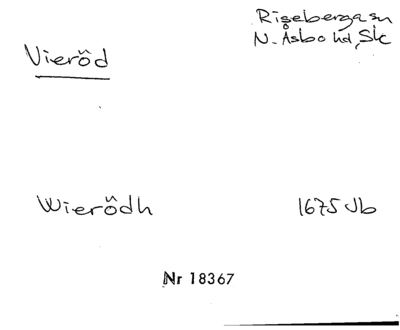 Riseberga sn
Vieröd
N. Åsbo hd, Sk
Wierödh 1675 Jb
Nr 18367